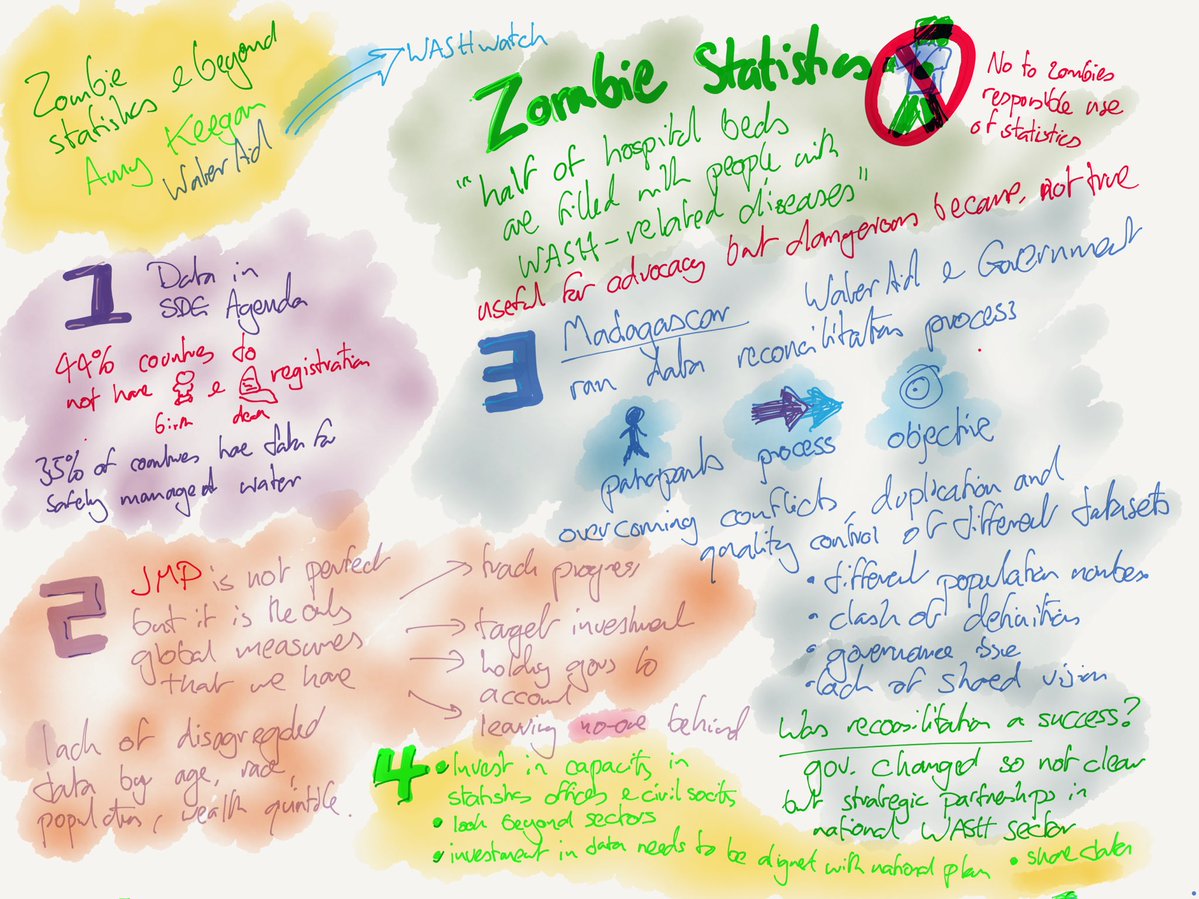 Zombie
statistics & beyond
Amy Keegan
WaterAid
WASHwatch
Zombie Statistics
No to zombies
responsible use
of statistics
"half of hospital beds
are filled with people with
WASH-related diseases"
useful for advocacy but dangerous because, not true
1
Data in
SDG Agenda
44% countries do
not have & registration
birth death
35% of countries have data for
safely managed water
2
JMP is not perfect
but it is the only
global measures
that we have
track progress
target investment
holding govs to
account
leaving no-one behind
lack of disagregded
data by age, race,
population, wealth quintile.
3
Madagascar WaterAid & Government
ran data reconcilitation process
participants process objective
overcoming conflicts, duplication and
quality control of different datasets
• different population numbers
• clash of definition
• governance issue
• lack of shared vision
Was reconsilitation a success?
gov. changed so not clear
but strategic partnerships in
national WASH sector
4
• Invest in capacity in
statistics offices & civil society
• look beyond sectors
• investment in data needs to be aligned with national plan
• share data